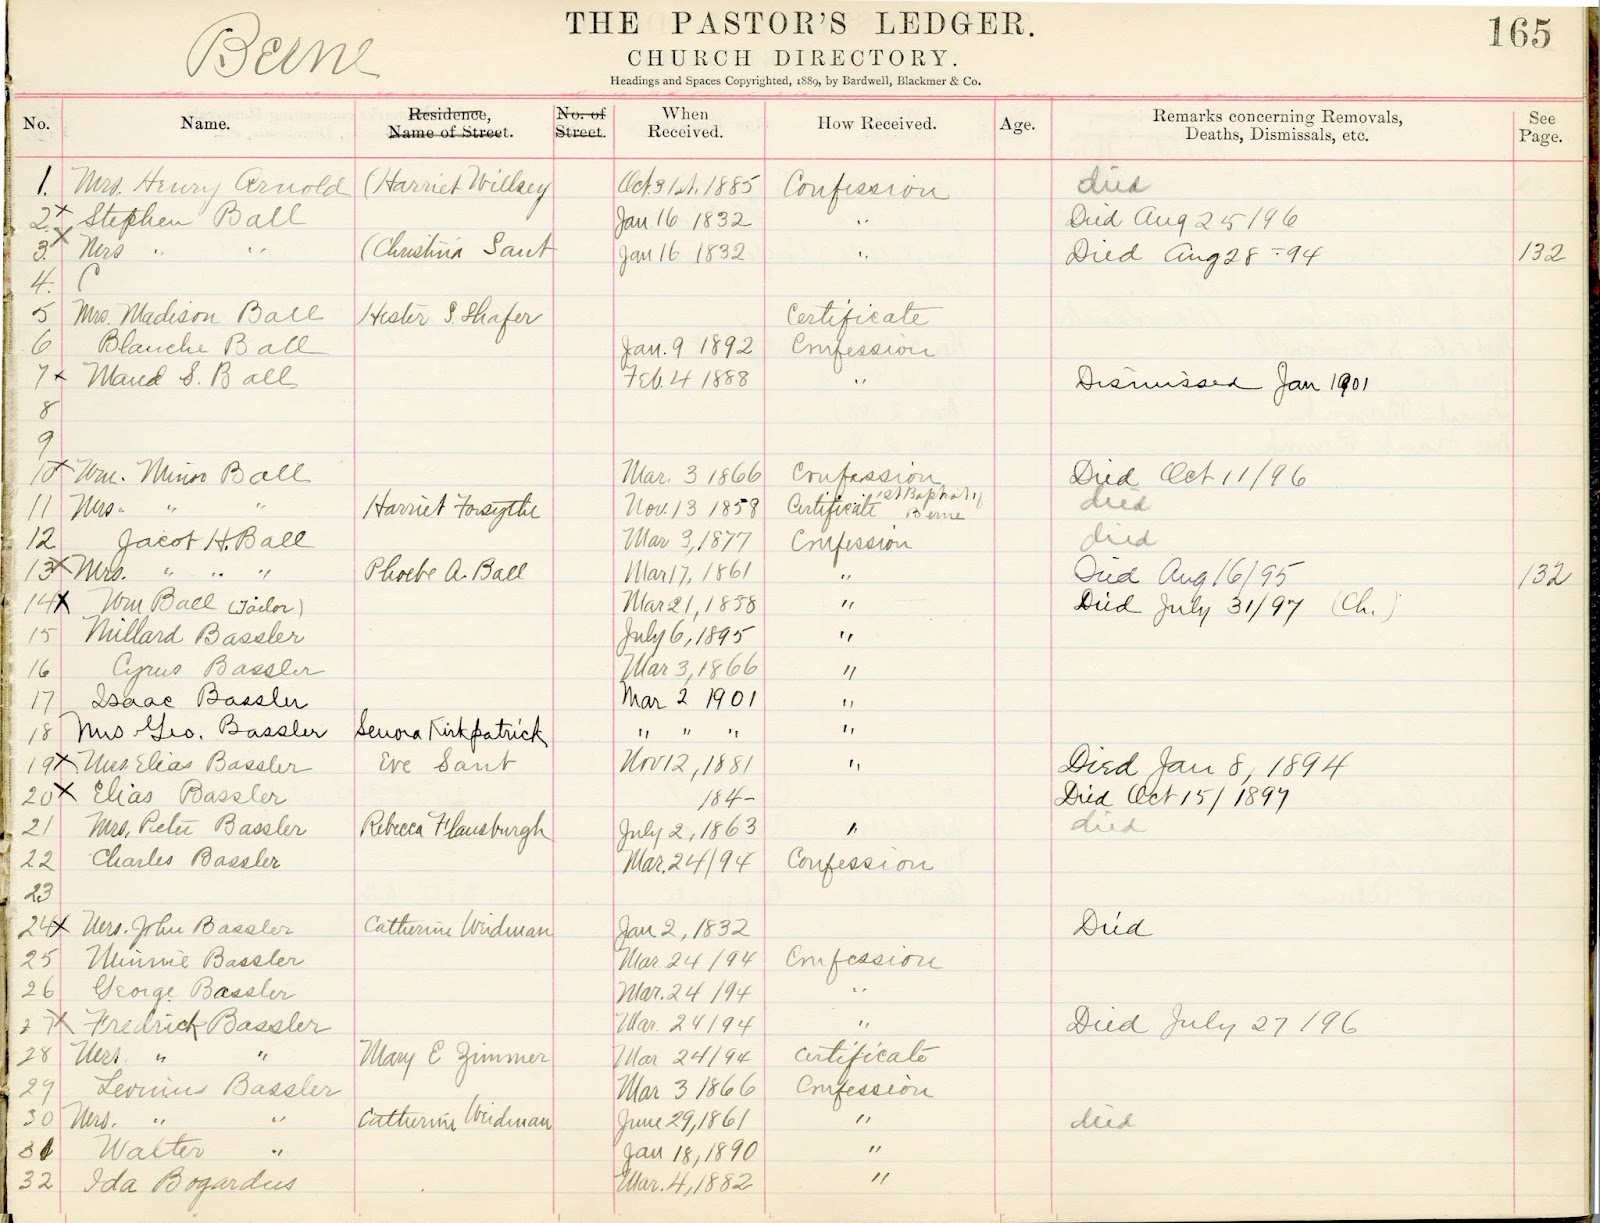 Berne
THE PASTOR'S LEDGER.
165
CHURCH DIRECTORY.
Headings and Spaces Copyrighted, 1889, by Bardwell, Blackmer & Co.
No. Name. Residence, Name of Street. No. of Street. When Received. How Received. Age. Remarks concerning Removals, Deaths, Dismissals, etc. See Page.
1. Mrs. Henry Arnold (Harriet Willsey Oct. 31st, 1885 Confession died
2. x Stephen Ball Jan. 16 1832 " Died Aug 25/96
3. x Mrs " " (Christina Sant Jan 16 1832 " Died Aug 28 - 94 132
4. C
5 Mrs. Madison Ball Hester S. Shafer Certificate
6 Blanche Ball Jan. 9 1892 Confession
7 x Maud S. Ball Feb. 4 1888 " Dismissed Jan 1901
8
9
10 x Wm. Minor Ball Mar. 3 1866 Confession Died Oct 11/96
11 Mrs. " " Harriet Forsythe Nov. 13 1858 Certificate 1st Baptist of Berne died
12 Jacob H. Ball Mar 3, 1877 Confession died
13 x Mrs. " " " Phoebe A. Ball Mar 17, 1861 " Died Aug 16/95 132
14 x Wm Ball (Tailor) Mar 21, 1858 " Died July 31/97 (Ch.)
15 Millard Bassler July 6, 1895 "
16 Cyrus Bassler Mar 3, 1866 "
17 Isaac Bassler Mar 2 1901 "
18 Mrs Geo. Bassler Senora Kirkpatrick " " " "
19 x Mrs Elias Bassler Eve Sant Nov 12, 1881 " Died Jan 8, 1894
20 x Elias Bassler 184- Died Oct 15/1897
21 Mrs. Peter Bassler Rebecca Flansburgh July 2, 1863 " died
22 Charles Bassler Mar. 24/94 Confession
23
24 x Mrs. John Bassler Catherine Weidman Jan 2, 1832 Died
25 Minnie Bassler Mar. 24/94 Confession
26 George Bassler Mar. 24/94 "
27 x Fredrick Bassler Mar. 24/94 " Died July 27/96
28 Mrs. " " Mary E Zimmer Mar 24/94 Certificate
29 Bassler Mar 3 1866 Confession
30 Mrs. " " Catherine Weidman June 29, 1861 " died
31 Walter " Jan 18, 1890 "
32 Ida Bogardus Mar. 4, 1882 "